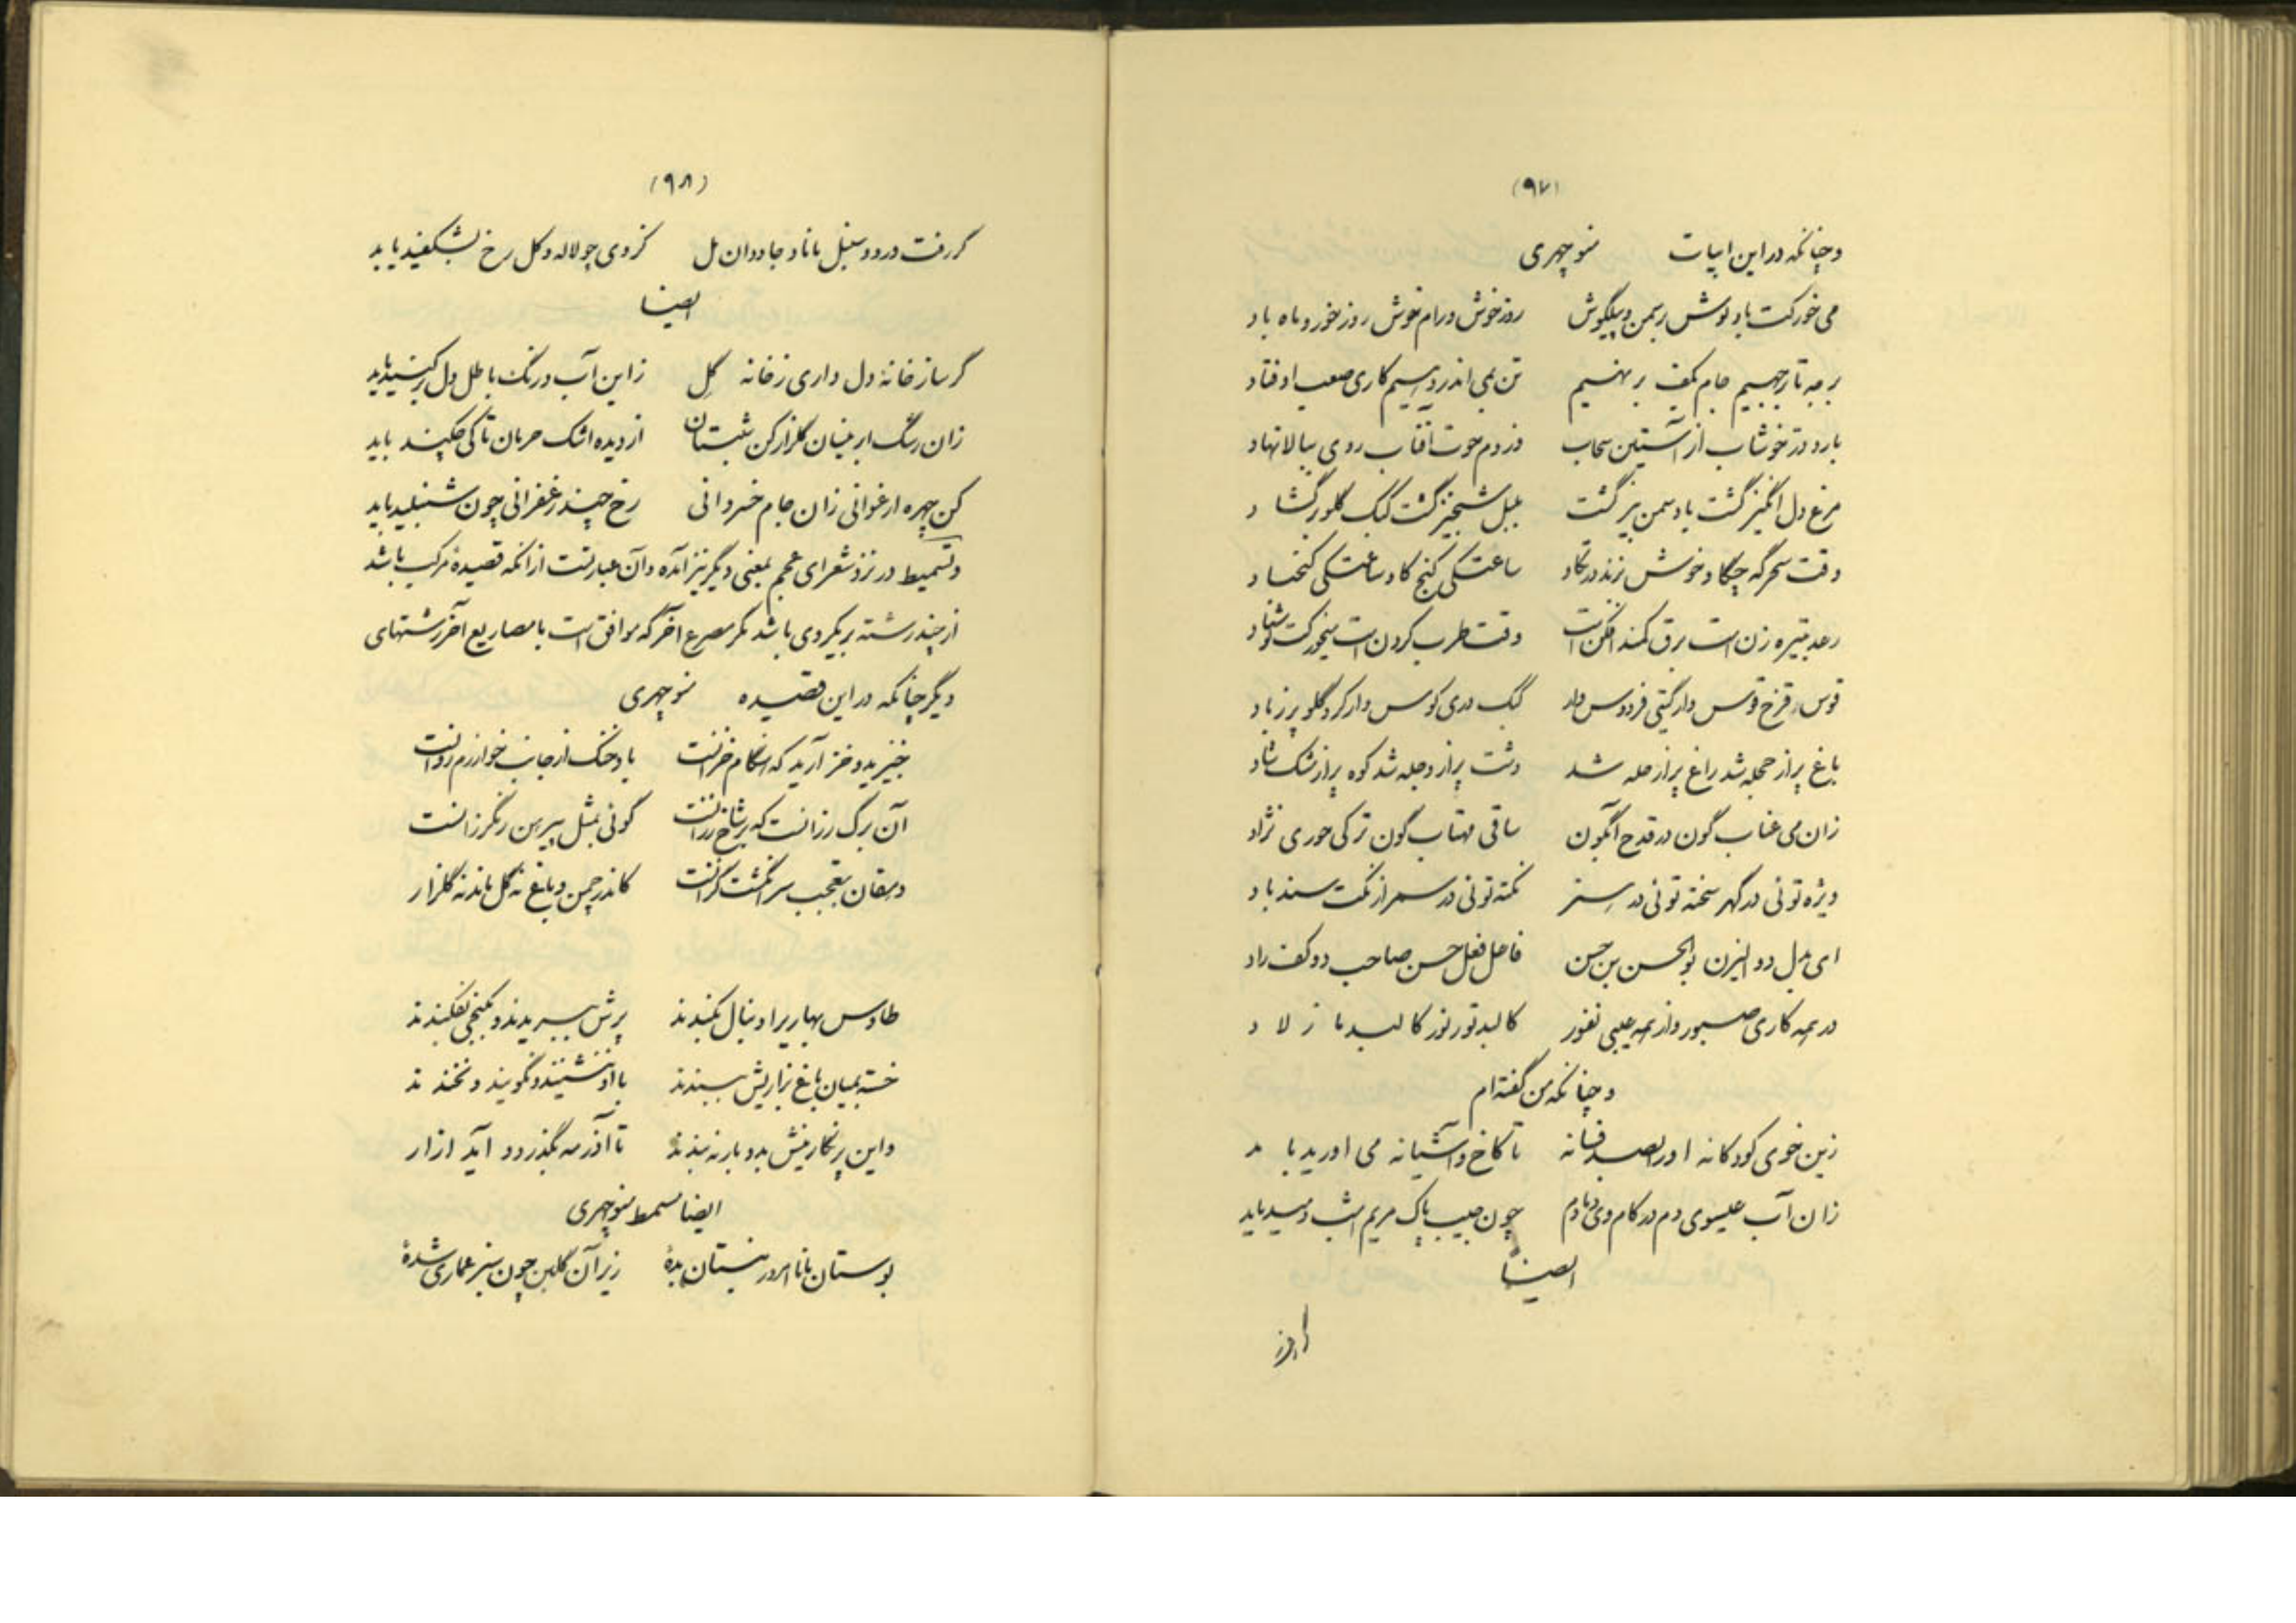 (۹۷)
و چنانکه در این ابیات منوچهری
می خور کت باد نوش بر سمن و پیلگوش روز خوش و رام خوش روز خور و ماه باد
بارد در خوشاب از آستین سحاب وز دم حوت آفتاب روی ببالا نهاد
مرغ دل انگیز گشت باد سمن بیز گشت بلبل شبخیز گشت کبک گلو برگشاد
وقت سحرگه چکاو خوش بزند در تکاو ساعتکی گنج کاو ساعتکی گنج باد
رعد تبیره زن است برق کمند افکن است وقت طرب کردن است میخور کت نوش باد
قوس قزح قوس وار گیتی فردوس وار کبک دری کوس وار کرد گلو پر ز باد
باغ پر از حجله شد راغ پر از حله شد دشت پر از دجله شد کوه پر از مشک ساد
زان می عناب گون در قدح آبگون ساقی مهتاب گون ترکی حوری نژاد
ویژه توئی در گهر سخته توئی در هنر نکته توئی در سمر از نکت سندباد
ای بدل ذو الیزن بوالحسن بن حسن فاعل فعل حسن صاحب دو کف راد
در همه کاری صبور وز همه عیبی نفور کالبد تو ز نور کالبد ما ز لاد
و چنانکه من گفته ام
زین خوی کودکانه او را فسانه تا کاخ و آشیانه می اورید باید
زان آب عیسوی دم در کام وی دمادم چون جیب پاک مریم امشب دمید باید
ایضاً
(۹۸)
گر رفت درود سنبل مانا و جاودان مل کز وی چو لاله و گل رخ بشکفید باید
ایضا
گر ساز خانه دل داری ز خانه گل زاین آب و رنگ باطل دل بر کنید باید
زان رشگ ابر نیسان گلزار کن شبستان از دیده اشک حرمان تا کی چکید باید
کن چهره ارغوانی زان جام خسروانی رخ چند زعفرانی چون شنبلید باید
و تسمیط در نزد شعرای عجم بمعنی دیگر نیز آمده و آن عبارتست از آنکه قصیده مرکب باشد
از چند رشته بر یکروی باشد مگر مصرع آخر که موافق است با مصاریع آخر رشتهای
دیگر چنانکه در این قصیده منوچهری
خیزید و خز آرید که هنگام خزانست باد خنک از جانب خوارزم وزانست
آن برگ رزانست که بر شاخ رزانست گوئی بمثل پیرهن رنگرزانست
دهقان بتعجب سر انگشت گزانست کاندر چمن و باغ نه گل ماند نه گلزار
طاوس بهاری را دنبال بکندند پرش ببریدند و بکنجی بفکندند
خسته بمیان باغ بزاریش ببندند با او ننشینند و نگویند و نخندند
و این پر نگارینش بدو باز نبندند تا آذر مه بگذرد و آید ازار
ایضا مسمط منوچهری
بوستان بانا امروز ببستان بدهٔ زیر آن گلبن چون سبز عماری شدهٔ